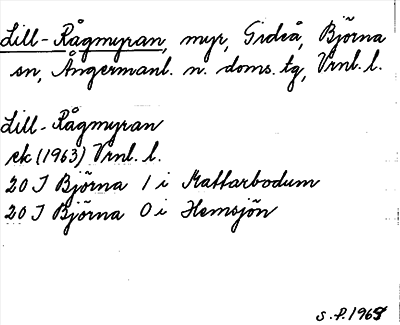 Lill-Rågmyran, myr, Gideå, Björna
sn, Ångermanl. n. doms. tg, Vrnl. l.
Lill-Rågmyran
ek (1963) Vrnl. l.
20 J Björna 1 i Mattarbodum
20 J Björna 0 i Hemsjön
s. f. 1968